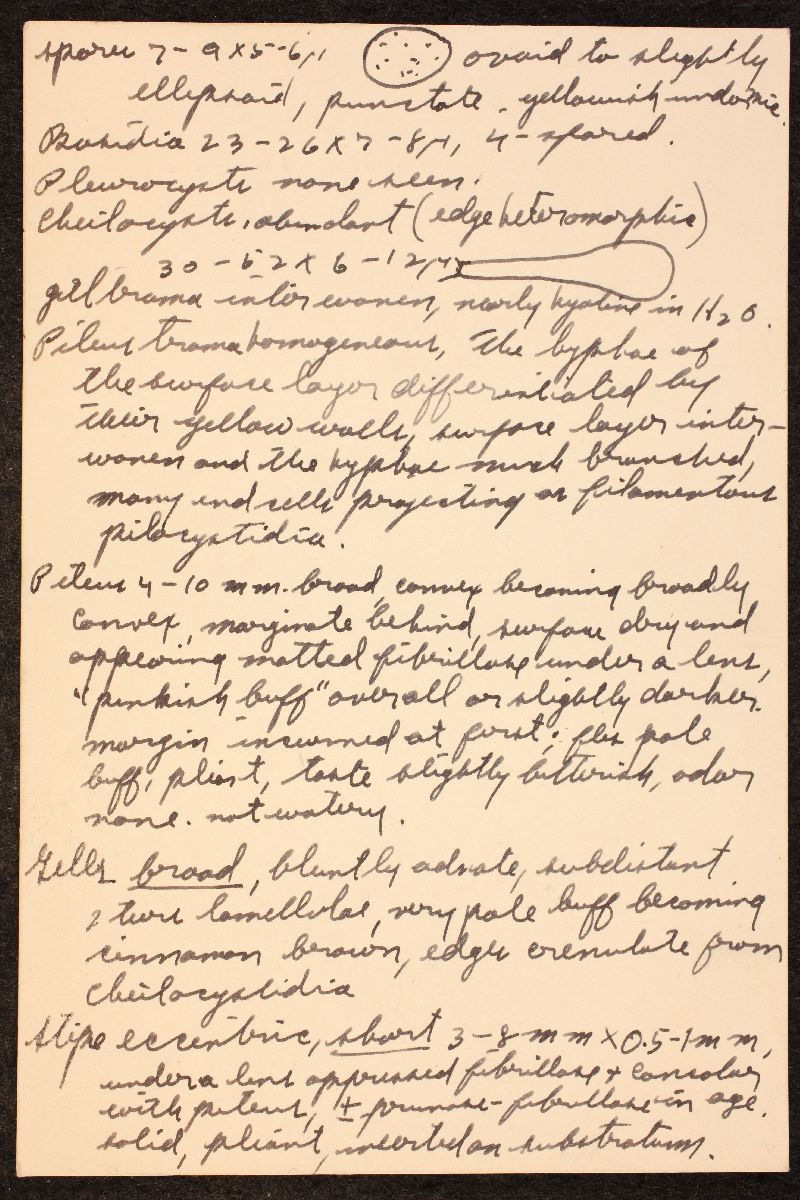 Spores 7-9 x 5-6μ ovoid to slightly
ellipsoid, punctate, yellowish under mic.
Basidia 23-26 x 7-8μ, 4-spored.
Pleurocysts none seen.
Cheilocysts. abundant (edge heteromorphic)
30-52 x 6-12μ
gill trama interwoven, nearly hyaline in H2O.
Pileus trama homogeneous, the hyphae of
the surface layer differentiated by
their yellow walls, surface layer inter-
woven and the hyphae much branched,
many end cells projecting as filamentous
pilocystidia.
Pileus 4-10 mm. broad, convex becoming broadly
convex, marginate behind, surface dry and
appearing matted fibrillose under a lens,
"pinkish buff" overall or slightly darker.
margin incurved at first; flesh pale
buff, pliant, taste slightly bitterish, odor
none. not watery.
Gills broad, bluntly adnate, subdistant
2 tiers lamellulae, very pale buff becoming
cinnamon brown, edges crenulate from
cheilocystidia
Stipe eccentric, short 3-8 mm x 0.5-1 mm,
under a lens appressed fibrillose + concolor
with pileus, ± pruinose-fibrillose in age.
solid, pliant, inserted on substratum.